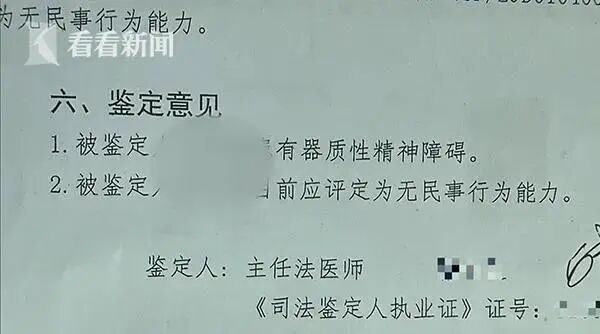 为无民事行为能力。
看看新闻
六、鉴定意见
1. 被鉴定 有器质性精神障碍。
2. 被鉴定人 目前应评定为无民事行为能力。
鉴定人：主任法医师
《司法鉴定人执业证》证号：